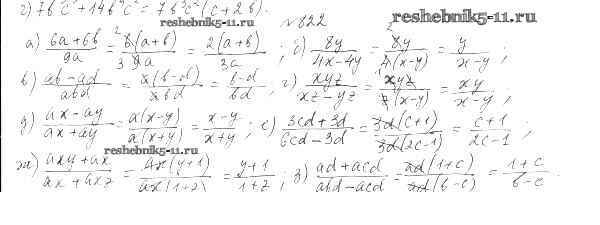 г) 7b³c³+14b⁴c²= 7b³c²(c+2b).
reshebnik5-11.ru
reshebnik5-11.ru
№822
а) (6a+6b)/(9a) = (²6(a+b))/(3 9a) = (2(a+b))/(3a) ; б) (8y)/(4x-4y) = (²8y)/(4(x-y)) = y/(x-y) ;
в) (ab-ad)/(abd) = (a(b-d))/(abd) = (b-d)/(bd) ; г) (xyz)/(xz-yz) = (xyz)/(z(x-y)) = (xy)/(x-y) ;
д) (ax-ay)/(ax+ay) = (a(x-y))/(a(x+y)) = (x-y)/(x+y) ; е) (3cd+3d)/(6cd-3d) = (3d(c+1))/(3d(2c-1)) = (c+1)/(2c-1) ;
reshebnik5-11.ru
ж) (axy+ax)/(ax+axz) = (ax(y+1))/(ax(1+z)) = (y+1)/(1+z) ; з) (ad+acd)/(abd-acd) = (ad(1+c))/(ad(b-c)) = (1+c)/(b-c) .